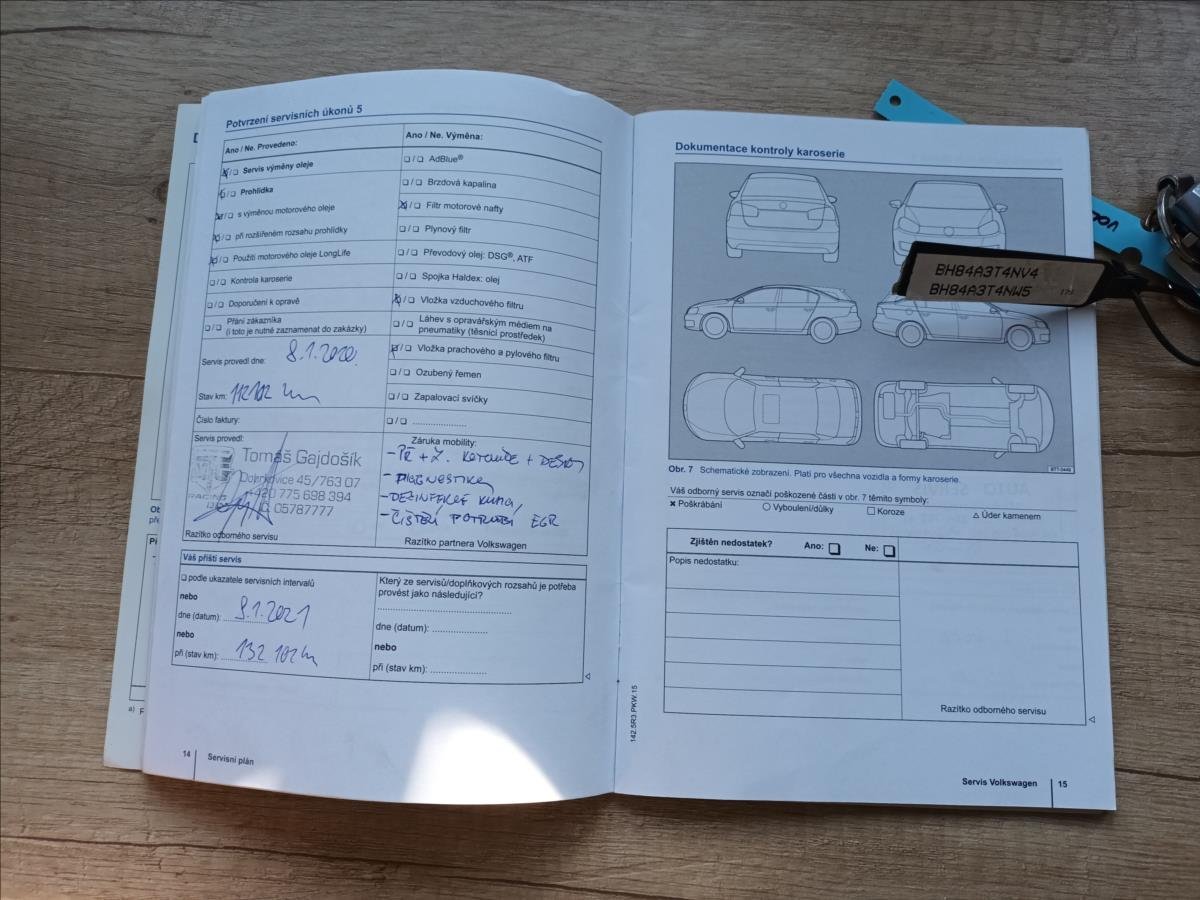 Potvrzení servisních úkonů 5
Ano / Ne. Provedeno:
❏/❏ Servis výměny oleje
❏/❏ Prohlídka
❏/❏ s výměnou motorového oleje
❏/❏ při rozšířeném rozsahu prohlídky
❏/❏ Použití motorového oleje LongLife
❏/❏ Kontrola karoserie
❏/❏ Doporučení k opravě
❏/❏ Přání zákazníka
(i toto je nutné zaznamenat do zakázky)
Servis provedl dne: 8.1.2020
Stav km: 112102 km
Číslo faktury:
Servis provedl:
Tomáš Gajdošík
Dobrkovice 45/763 07
+420 775 698 394
IČ: 05787777
RACING
Razítko odborného servisu
Ano / Ne. Výměna:
❏/❏ AdBlue®
❏/❏ Brzdová kapalina
❏/❏ Filtr motorové nafty
❏/❏ Plynový filtr
❏/❏ Převodový olej: DSG®, ATF
❏/❏ Spojka Haldex: olej
❏/❏ Vložka vzduchového filtru
❏/❏ Láhev s opravářským médiem na
pneumatiky (těsnicí prostředek)
❏/❏ Vložka prachového a pylového filtru
❏/❏ Ozubený řemen
❏/❏ Zapalovací svíčky
❏/❏ ....................
Záruka mobility:
- PŘ + Z. KOTOUČE + DESKY
- DIAGNOSTIKA
- DEZINFEKCE KLIMA
- ČIŠTĚNÍ POTRUBÍ EGR
Razítko partnera Volkswagen
Váš příští servis
❏ podle ukazatele servisních intervalů
nebo
dne (datum): 8.1.2021
nebo
při (stav km): 132 102 km
Který ze servisů/doplňkových rozsahů je potřeba
provést jako následující?
dne (datum): ....................
nebo
při (stav km): ....................
14
Servisní plán
142.5R3.PKW.15
Dokumentace kontroly karoserie
BH84A3T4NV4
BH84A3T4NW5
Obr. 7 Schematické zobrazení. Platí pro všechna vozidla a formy karoserie.
Váš odborný servis označí poškozené části v obr. 7 těmito symboly:
✖ Poškrábání ○ Vyboulení/důlky □ Koroze △ Úder kamenem
Zjištěn nedostatek? Ano: ❏ Ne: ❏
Popis nedostatku:
Razítko odborného servisu
Servis Volkswagen
15